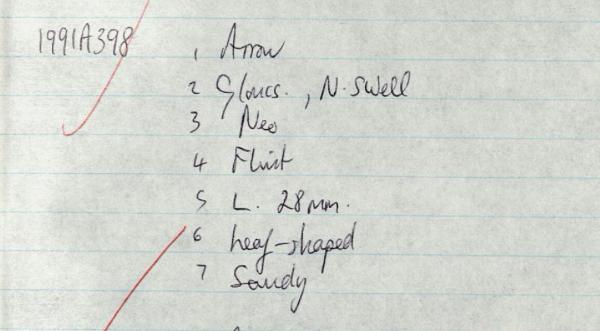 1991A398
1 Arrow
2 Gloucs., N. Swell
3 Neo
4 Flint
5 L. 28mm.
6 leaf-shaped
7 Sandy